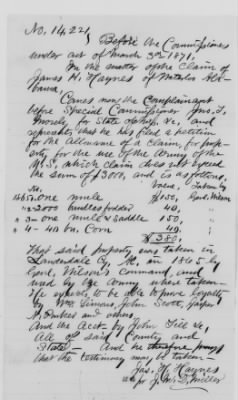 No. 14,221,
Before the Commissioners
under act of March 3rd 1871.
In the matter of the claim of
James H. Haynes of Waterloo Ala-
bama,
Comes now the Complainant
before Special Commissioner Jno. T.
for State &c, and
represents that he has filed a petition
for the allowance of a claim, for prop-
erty for the use of the Army of the
U.S., which claim does not exceed
the sum of $3000, and is as follows,
Value, Taken by
one mule $150,
2 2000 bundles fodder 40,
3 one mule & Saddle 150,
4 40 bu. Corn 40,
$380
That said property was taken in
Lauderdale Co, in 1865 by
Wilson's command, and
used by the army, when taken.
He expects to be able to prove loyalty
by Simons, John Scott,
and others,
And the Acct. by John &c,
All of said County and
State – And he therefore prays
that the testimony may be taken –
Jas. H. Haynes
J. Miller